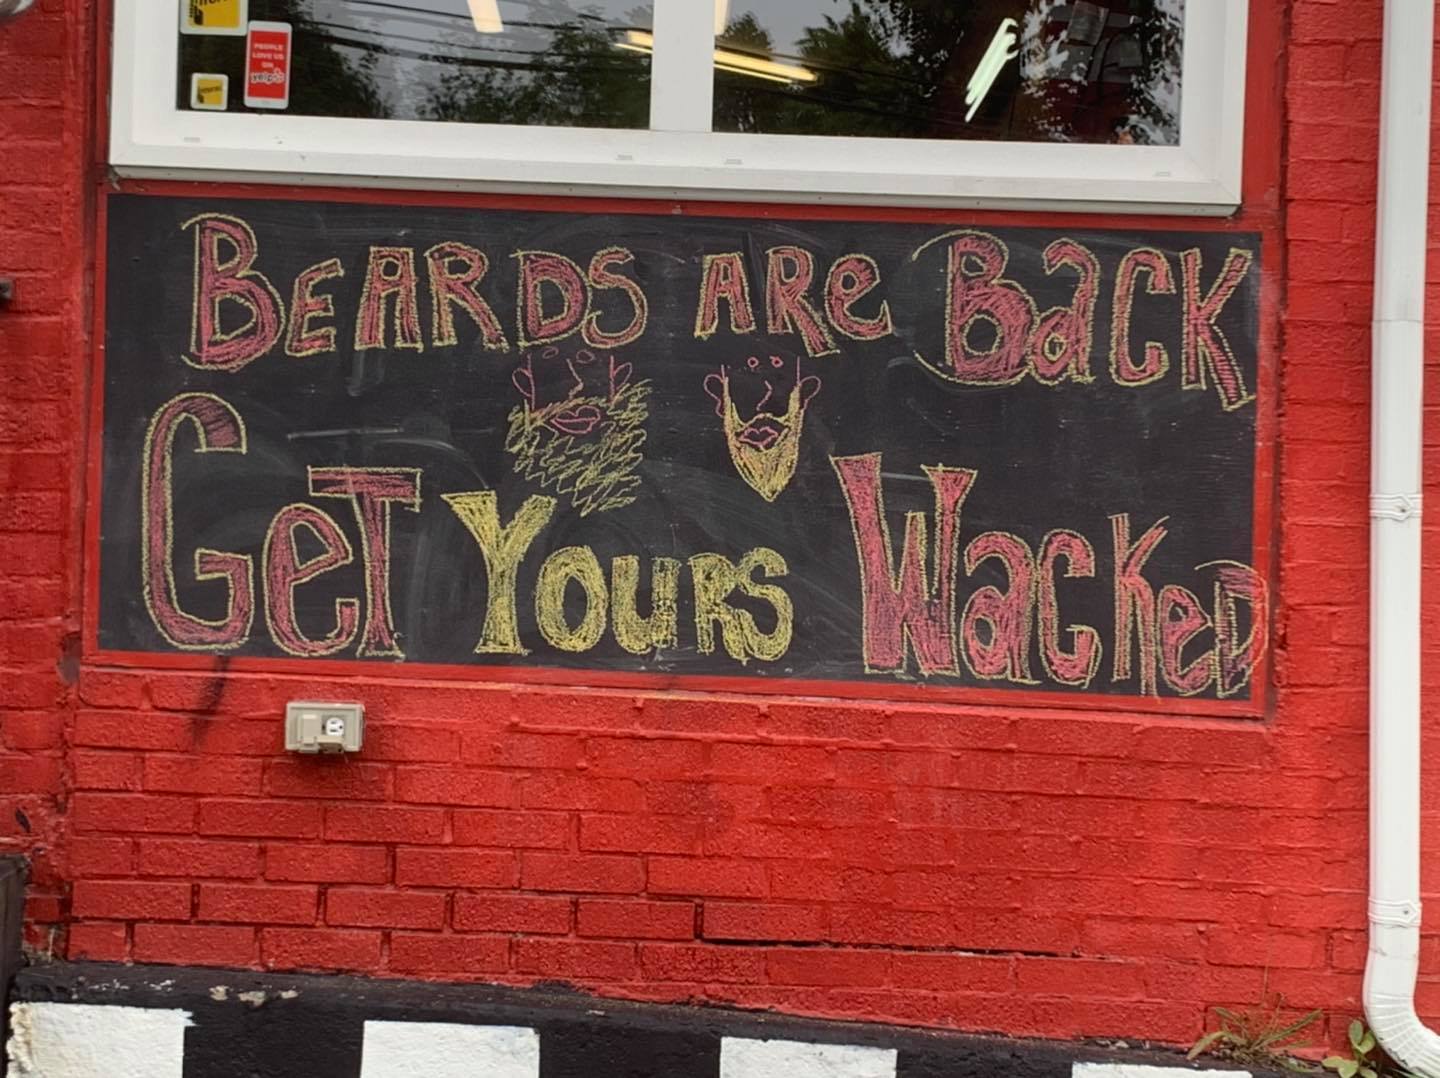 PEOPLE
LOVE US
ON
yelp
BEARDS ARe BaCK
GeT YOuRS WacKeD